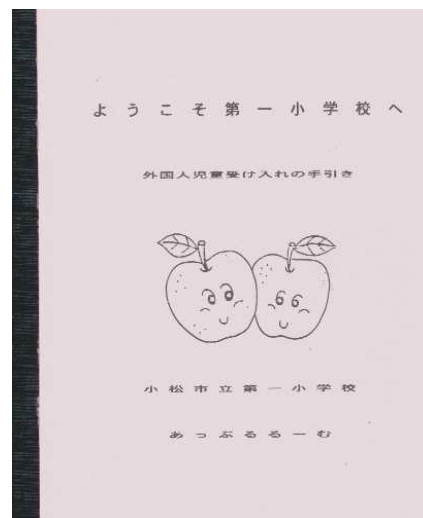 ようこそ第一小学校へ
外国人児童受け入れの手引き
小松市立第一小学校
あっぷるるーむ